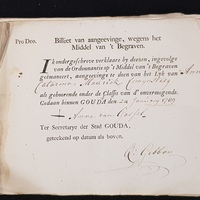 Pro Deo. Billet van aangeevinge, wegens het
Middel van 't Begraven.
IK ondergeschreve verklaare by deezen, ingevolge
van de Ordonnantie op 't Middel van 't Begraven
geëmaneert, aangeevinge te doen van het Lyk van Anna
Catarina
als gehoorende onder de Classis van d' onvermogende.
Gedaan binnen GOUDA, den 24 January 1769
Anna van
Ter Secretarye der Stad GOUDA,
geteekend op datum als boven.